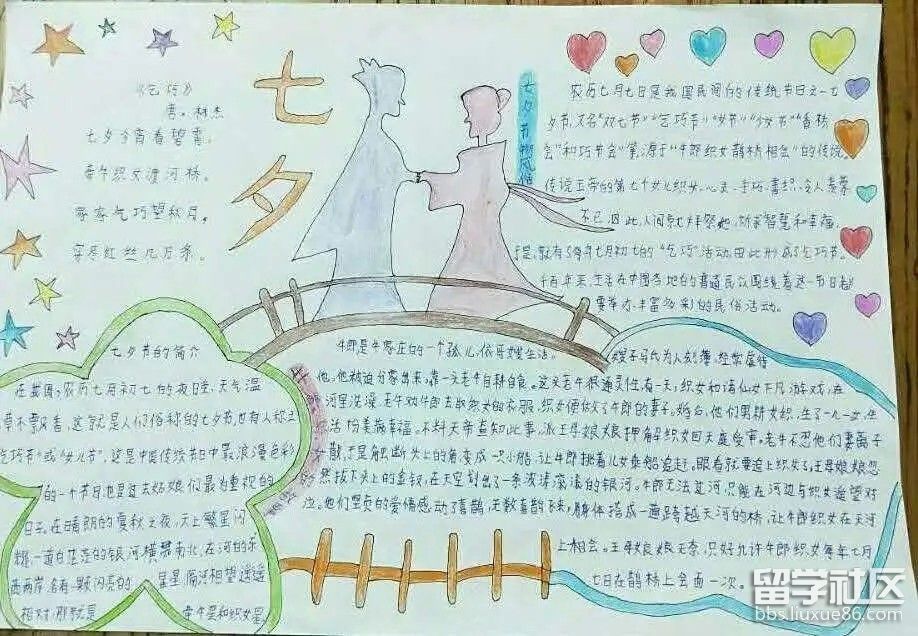 七夕
《乞巧》
唐。林杰
七夕今宵看碧霄,
牵牛织女渡河桥。
家家乞巧望秋月,
穿尽红丝几万条。
七夕节的风俗
农历七月七日是我国民间的传统节日之一七
夕节,又名"双七节""乞巧节""少女节""香桥
会"和巧节会"等,源于"牛郎织女鹊桥相会"的传说。
传说玉帝的第七个女儿织女,心灵、手巧、善织,令人羡慕
不已因此,人间就拜祭她,祈求智慧和幸福,
于是,就有了每年七月初七的"乞巧"活动由此形成了乞巧节。
千百年来,生活在中国各地的普通民众围绕着这一节日都
要举办丰富多彩的民俗活动。
七夕节的简介
在我国,农历七月初七的夜晚,天气温
草木飘香,这就是人们俗称的七夕节,也有人称之
乞巧节"或"女儿节",这是中国传统节日中最浪漫色彩
的一个节日也是过去姑娘们最为重视的
日子。在晴朗的夏秋之夜,天上繁星闪
耀,一道白茫茫的银河横贯南北,在河的东
西两岸,各有一颗闪亮的星星隔河相望遥遥
相对,那就是牵牛星和织女星
牛郎是牛家庄的一个孤儿,依哥嫂生活。嫂子马氏为人刻薄,经常虐待
他,他被迫分家出来,靠一头老牛自耕自食。这头老牛很通灵性有一天,织女和诸仙女下凡游戏,在
河里洗澡,老牛劝牛郎去取织女的衣服,织女便做了牛郎的妻子。婚后,他们男耕女织,生了一儿一女,生
活十分美满幸福。不料天帝查知此事,派王母娘娘押解织女回天庭受审。老牛不忍他们妻离子
散,于是触断头上的角变成一只小船,让牛郎挑着儿女乘船追赶。眼看就要追上织女了,王母娘娘忽
然拔下头上的金钗,在天空划出了一条波涛滚滚的银河。牛郎无法过河,只能在河边与织女遥望对
泣。他们坚贞的爱情感动了喜鹊,无数喜鹊飞来,用身体搭成一道跨越天河的桥,让牛郎织女在天河
上相会。王母娘娘无奈,只好允许牛郎织女每年七月
七日在鹊桥上会面一次。
留学社区
bbs.liuxue86.com